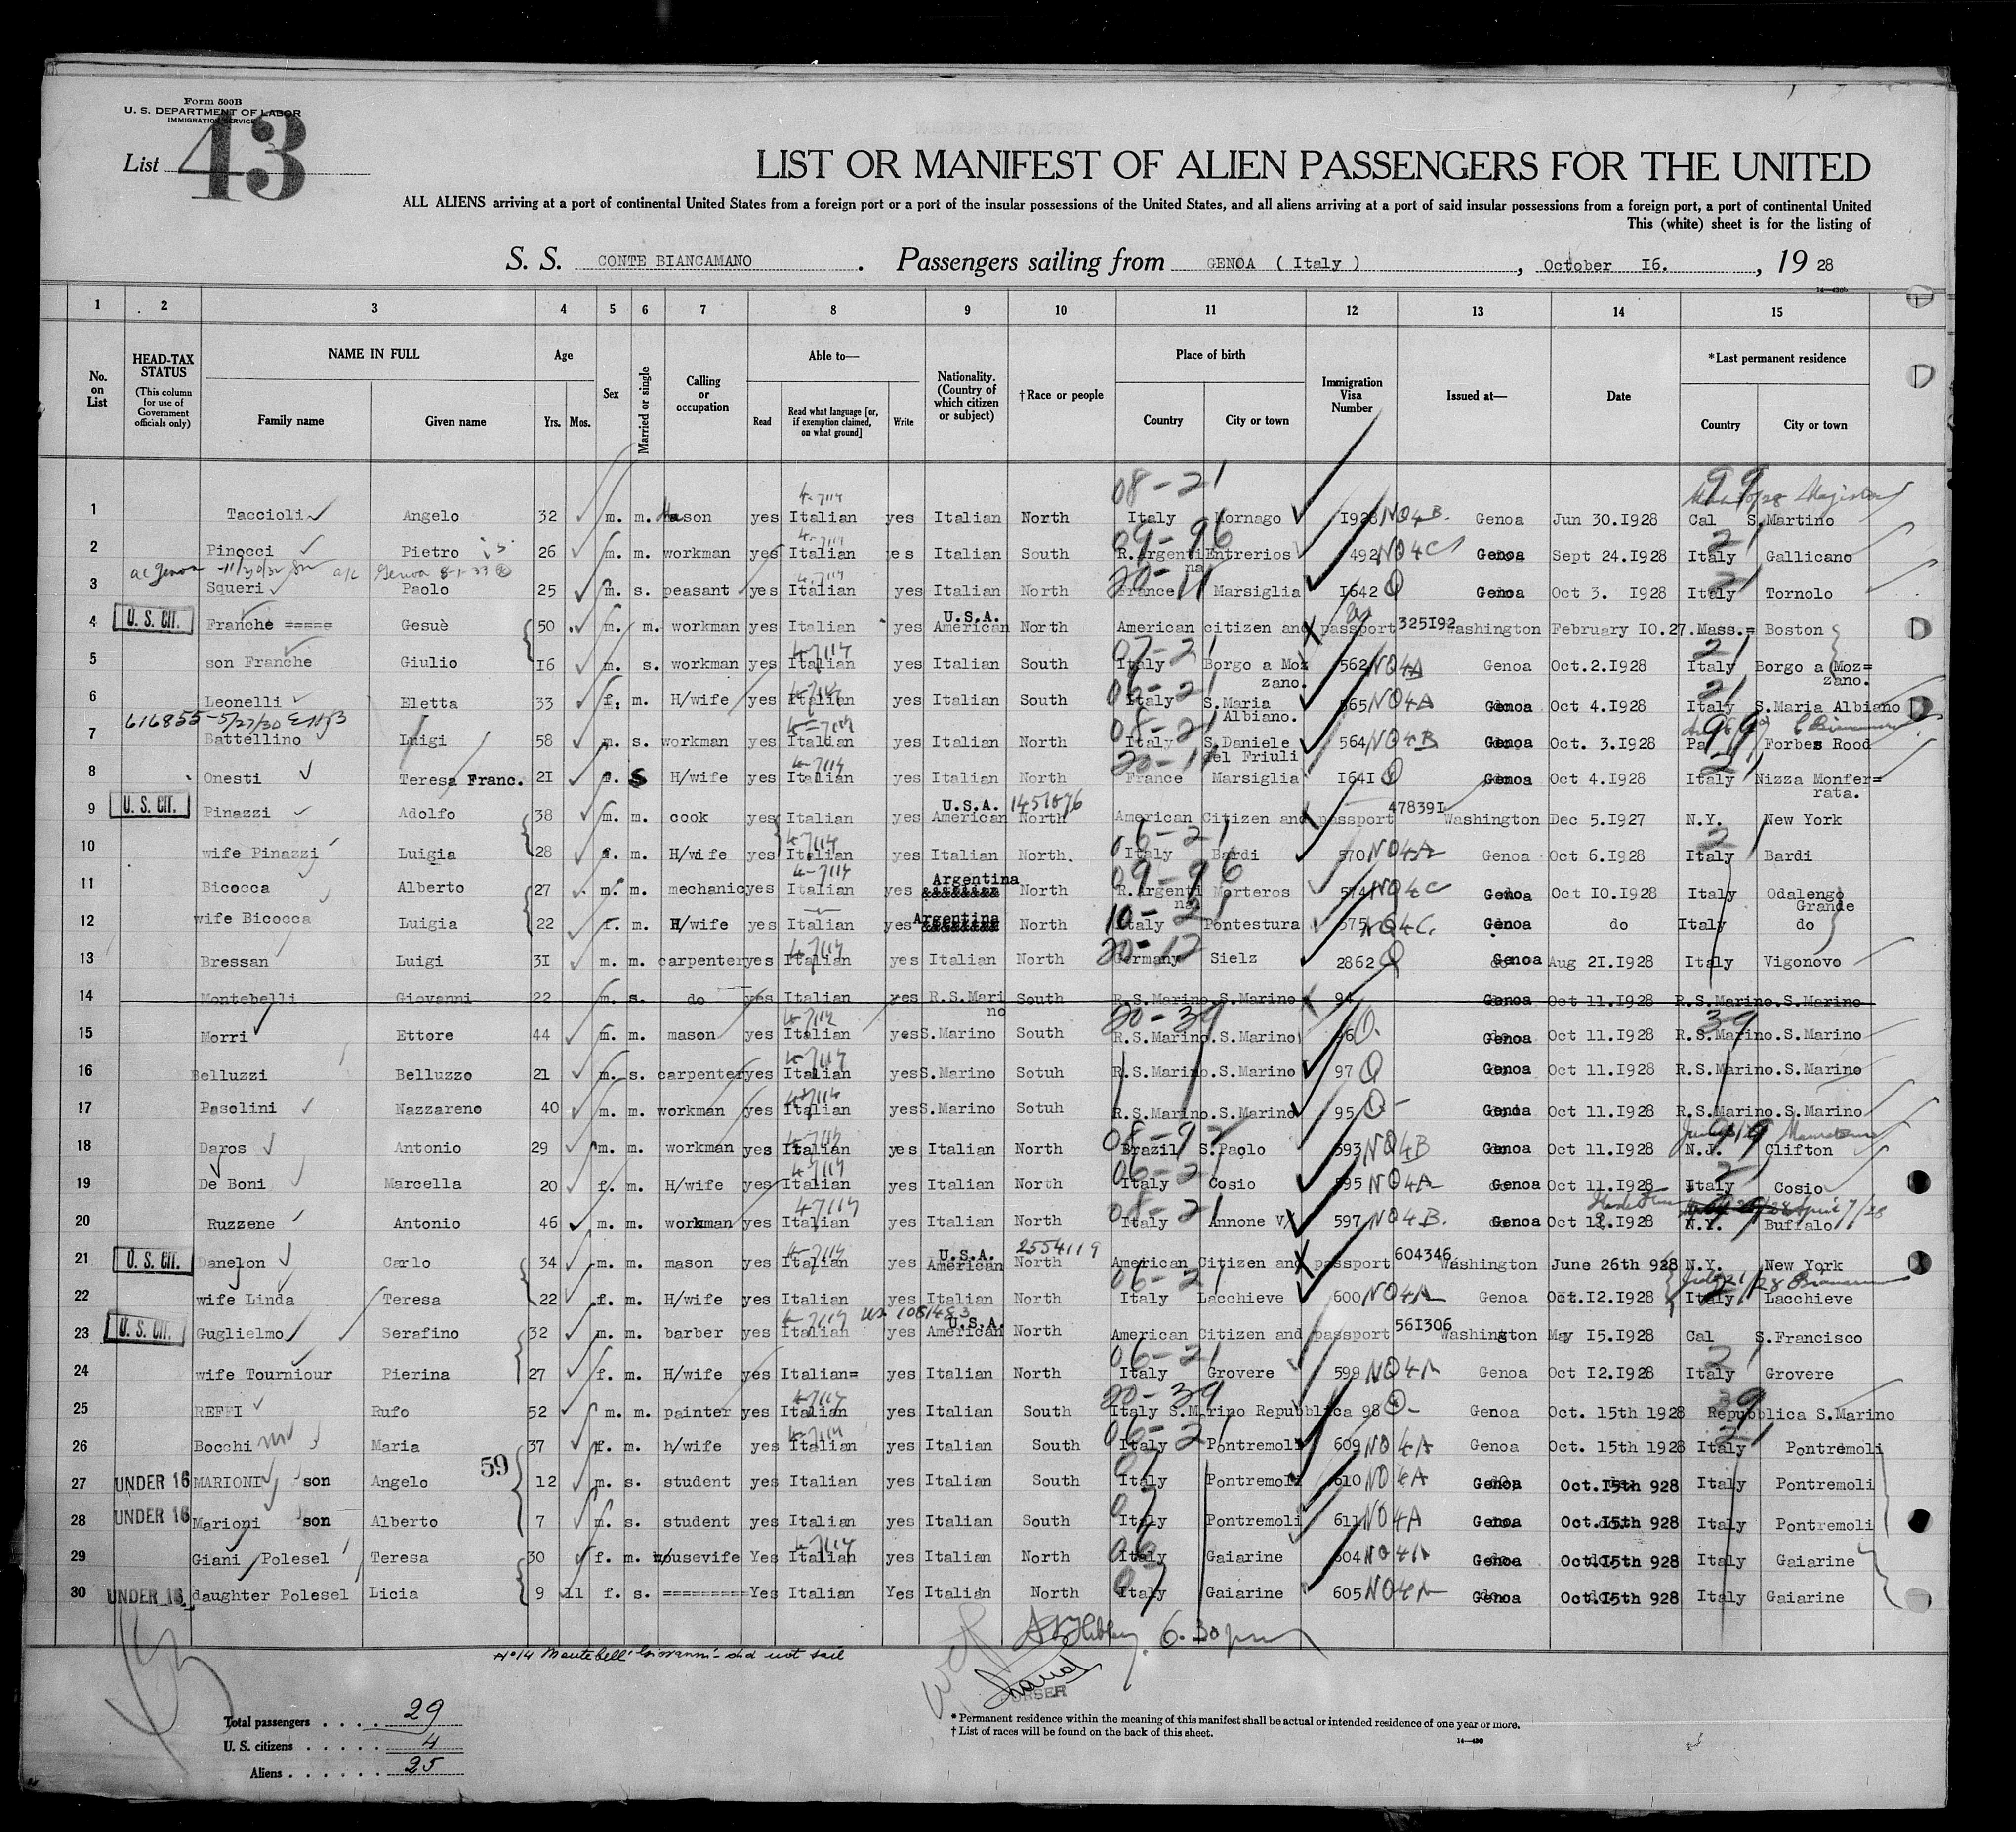 Form 500B
U. S. DEPARTMENT OF LABOR
IMMIGRATION SERVICE
List 43
LIST OR MANIFEST OF ALIEN PASSENGERS FOR THE UNITED
ALL ALIENS arriving at a port of continental United States from a foreign port or a port of the insular possessions of the United States, and all aliens arriving at a port of said insular possessions from a foreign port, a port of continental United
This (white) sheet is for the listing of
S. S. CONTE BIANCAMANO . Passengers sailing from GENOA ( Italy ) , October I6. , 19 28
14—430b
1 2 3 4 5 6 7 8 9 10 11 12 13 14 15
No. on List
HEAD-TAX STATUS (This column for use of Government officials only)
NAME IN FULL Family name Given name
Age Yrs. Mos.
Sex
Married or single
Calling or occupation
Able to— Read Read what language [or, if exemption claimed, on what ground] Write
Nationality. (Country of which citizen or subject)
†Race or people
Place of birth Country City or town
Immigration Visa Number
Issued at—
Date
*Last permanent residence Country City or town
08-21 99
1 Taccioli Angelo 32 m. m. Mason yes Italian yes Italian North Italy Mornago I928 NQ4B. Genoa Jun 30.I928 Cal S.Martino
09-96 21
2 Pinocci Pietro 26 m. m. workman yes Italian yes Italian South R.Argentina Entrerios 492 NQ4C Genoa Sept 24.I928 Italy Gallicano
Genoa 8-1-33
3 Squeri Paolo 25 m. s. peasant yes Italian yes Italian North France Marsiglia I642 Q Genoa Oct 3. I928 Italy Tornolo
4 U. S. CIT. Franche ===== Gesuè 50 m. m. workman yes Italian yes U.S.A. American North American citizen and passport 325I92 Washington February I0.27. Mass.= Boston
07-21 21
5 son Franche Giulio I6 m. s. workman yes Italian yes Italian South Italy Borgo a Moz zano. 562 NQ4A Genoa Oct.2.I928 Italy Borgo a Moz= zano.
06-21 21
6 Leonelli Eletta 33 f. m. H/wife yes Italian yes Italian South Italy S.Maria Albiano. 565 NQ4A Genoa Oct 4.I928 Italy S.Maria Albiano
616855-5/27/30
08-21 99
7 Battellino Luigi 58 m. s. workman yes Italian yes Italian North Italy S.Daniele del Friuli 564 NQ4B Genoa Oct. 3.I928 Pa Forbes Rood
8 Onesti Teresa Franc. 2I f. S H/wife yes Italian yes Italian North France Marsiglia I64I Q Genoa Oct 4.I928 Italy Nizza Monfer= rata.
9 U. S. CIT. Pinazzi Adolfo 38 m. m. cook yes Italian yes U.S.A. American North American Citizen and passport 47839I Washington Dec 5.I927 N.Y. New York
06-21
10 wife Pinazzi Luigia 28 f. m. H/wife yes Italian yes Italian North. Italy Bardi 570 NQ4A Genoa Oct 6.I928 Italy Bardi
09-96
11 Bicocca Alberto 27 m. m. mechanic yes Italian yes Argentina North R.Argentina Morteros 574 NQ4C Genoa Oct I0.I928 Italy Odalengo Grande
10-21
12 wife Bicocca Luigia 22 f. m. H/wife yes Italian yes Argentina North Italy Pontestura 575 NQ4C. Genoa do Italy do
20-12
13 Bressan Luigi 3I m. m. carpenter yes Italian yes Italian North Germany Sielz 2862 Q Genoa Aug 2I.I928 Italy Vigonovo
14 Montebelli Giovanni 22 m. s. do yes Italian yes R.S.Marino South R.S.Marino.S.Marino 94 Genoa Oct 11.I928 R.S.Marino.S.Marino
20-39 39
15 Morri Ettore 44 m. m. mason yes Italian yes S.Marino South R.S.Marino.S.Marino 96 Q. Genoa Oct 11.I928 R.S.Marino.S.Marino
16 Belluzzi Belluzzo 21 m. s. carpenter yes Italian yes S.Marino Sotuh R.S.Marino.S.Marino 97 Q Genoa Oct 11.I928 R.S.Marino.S.Marino
17 Pasolini Nazzareno 40 m. m. workman yes Italian yes S.Marino Sotuh R.S.Marino.S.Marino 95 Q- Genoa Oct 11.I928 R.S.Marino.S.Marino
18 Daros Antonio 29 m. m. workman yes Italian yes Italian North Brazil S.Paolo 593 NQ4B Genoa Oct 11.I928 N.J. Clifton
06-21
19 De Boni Marcella 20 f. m. H/wife yes Italian yes Italian North Italy Cosio 595 NQ4A Genoa Oct 11.I928 Italy Cosio
08-21
20 Ruzzene Antonio 46 m. m. workman yes Italian yes Italian North Italy Annone V. 597 NQ4B. Genoa Oct 12.I928 N.Y. Buffalo
2554119
21 U. S. CIT. Danelon Carlo 34 m. m. mason yes Italian yes U.S.A. American North American Citizen and passport 604346 Washington June 26th 928 N.Y. New York
06-21
22 wife Linda Teresa 22 f. m. H/wife yes Italian yes Italian North Italy Lacchieve 600 NQ4A Genoa Oct.I2.I928 Italy Lacchieve
23 U. S. CIT. Guglielmo Serafino 32 m. m. barber yes Italian yes U.S.A. American North American Citizen and passport 56I306 Washington May I5.I928 Cal S.Francisco
06-21
24 wife Tourniour Pierina 27 f. m. H/wife yes Italian= yes Italian North Italy Grovere 599 NQ4A Genoa Oct I2.I928 Italy Grovere
20-39 39
25 REFFI Rufo 52 m. m. painter yes Italian yes Italian South Italy S.Marino Repubblica 98 Q- Genoa Oct. 15th 1928 Repubblica S.Marino
06-21 21
26 Bocchi Maria 37 f. m. h/wife yes Italian yes Italian South Italy Pontremoli 609 NQ4A Genoa Oct. 15th 1928 Italy Pontremoli
59
27 UNDER 16 MARIONI son Angelo 12 m. s. student yes Italian yes Italian South Italy Pontremoli 610 NQ4A Genoa Oct.15th 928 Italy Pontremoli
28 UNDER 16 Marioni son Alberto 7 m. s. student yes Italian yes Italian South Italy Pontremoli 611 NQ4A Genoa Oct.15th 928 Italy Pontremoli
29 Giani Polesel Teresa 30 f. m. housevife Yes Italian yes Italian North Italy Gaiarine 604 NQ4A Genoa Oct.15th 928 Italy Gaiarine
30 UNDER 16 daughter Polesel Licia 9 11 f. s. ========= Yes Italian Yes Italian North Italy Gaiarine 605 NQ4A Genoa Oct.15th 928 Italy Gaiarine
6.30 pm
N°14 Montebelli Giovanni - did not sail
PURSER
Total passengers . . . . 29
U. S. citizens . . . . . 4
Aliens . . . . . . 25
* Permanent residence within the meaning of this manifest shall be actual or intended residence of one year or more.
† List of races will be found on the back of this sheet.
14—430